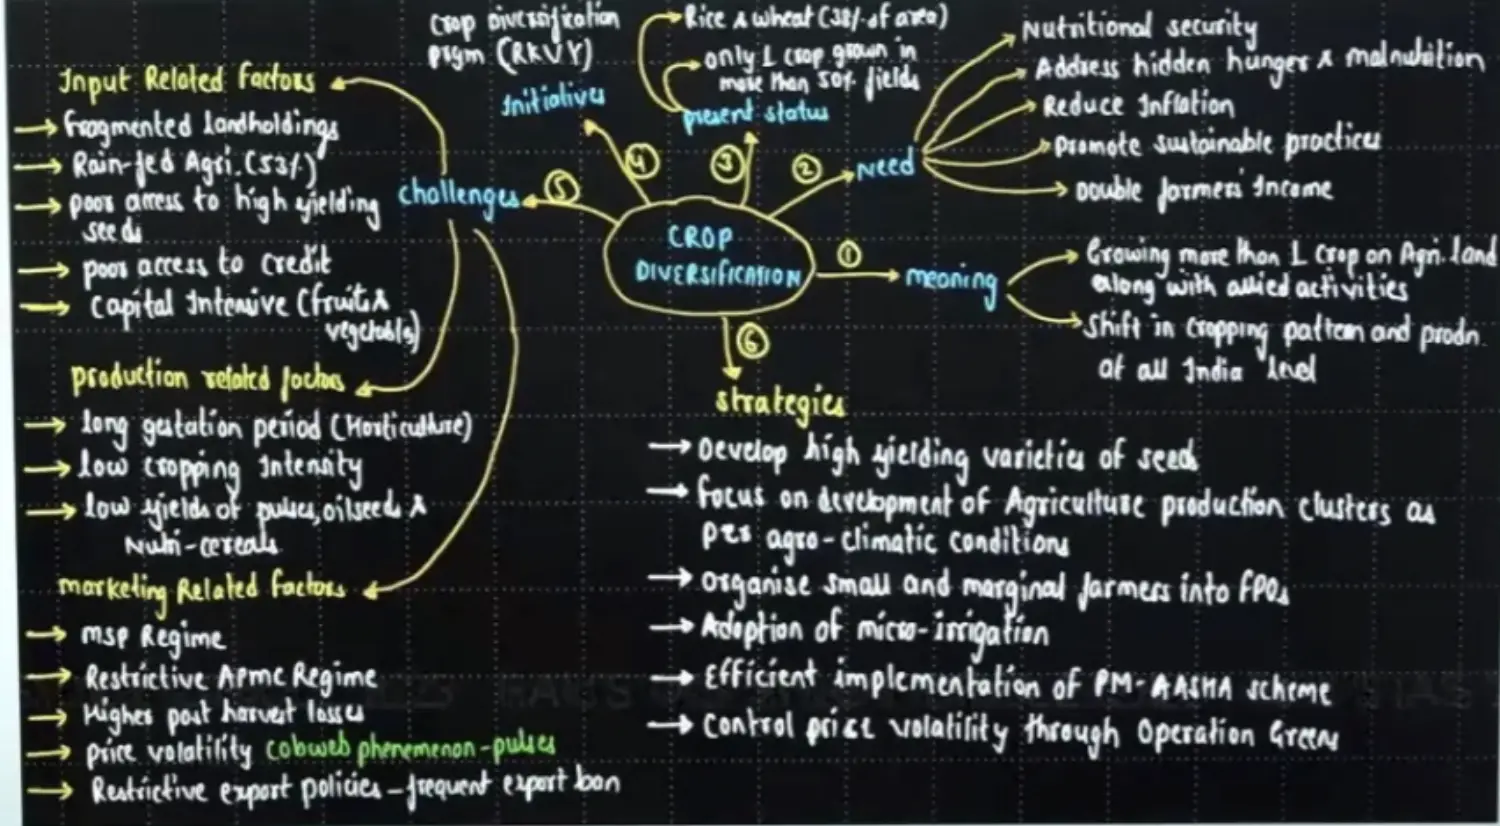 CROP
DIVERSIFICATION
①
meaning
Growing more than 1 crop on Agri. land
along with allied activities
Shift in cropping pattern and prodn.
at all India level
②
Need
Nutritional security
Address hidden hunger & malnutrition
Reduce Inflation
Promote sustainable practices
Double farmers' Income
③
present status
Rice & wheat (38% of area)
only 1 crop grown in
more than 50% fields
④
Initiatives
Crop Diversification
prgm (RKVY)
⑤
challenges
Input Related factors
fragmented landholdings
Rain-fed Agri. (53%)
poor access to high yielding
seeds
poor access to credit
Capital Intensive (fruits &
vegetables)
production related factors
long gestation period (Horticulture)
low cropping Intensity
low yields of pulses, oilseeds &
Nutri-cereals
marketing Related factors
MSP Regime
Restrictive APMC Regime
Higher post harvest losses
price volatility cobweb phenemenon-pulses
Restrictive export policies - frequent export ban
⑥
strategies
Develop high yielding varieties of seeds
focus on development of Agriculture production clusters as
per agro-climatic conditions
organise small and marginal farmers into FPOs
Adoption of micro-irrigation
Efficient implementation of PM-AASHA scheme
control price volatility through Operation Greens